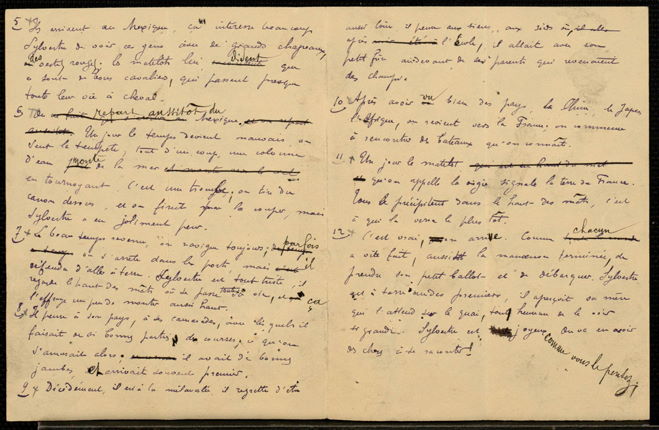 5 Ils arrivent au Mexique, ça intéresse beaucoup
Sylvestre de voir ces gens avec de grands chapeaux,
des vestes rouges. les matelots lui disent que
ce sont de bons cavaliers, qui passent presque
toute leur vie à cheval.
On repart aussitôt du Mexique
Un jour le temps devient mauvais, on
sent la tempête, tout d'un coup, une colonne
d'eau monte de la mer
en tournoyant c'est une trombe, on tire du
canon dessus, et on finit par la couper, mais
Sylvestre a eu joliment peur.
7 Le beau temps revenu, on navigue toujours; parfois
on s'arrête dans les ports, mais il
défendu d'aller à terre. Sylvestre est tout triste, il
regarde le haut des mâts où se passe toute sa vie, et ça
l'effraye un peu de monter aussi haut.
8 Il pense à son pays, à ses camarades, avec lesquels il
faisait de si bonnes parties de courses, et qu'on
s'amusait alors. il avait de bonnes
jambes, et arrivait souvent premier.
9 Décidément, il est à la mélancolie, il regrette d'être
aussi loin il pense aux siens, aux soirs où, il allait
après l'École, il allait avec son
petit frère au devant de ses parents qui revenaient
des champs.
10 Après avoir vu bien des pays, la Chine, le Japon
l'Afrique, on revient vers la France: on commence
à rencontrer des bateaux qu'on connaît.
11 Un jour le matelot
qu'on appelle la vigie signale la terre de France.
Tous se précipitent dans le haut des mâts, c'est
à qui la verra le plus tôt.
12 C'est vrai, on arrive. Comme chacun
a vite fait, aussitôt la manœuvre terminée, de
prendre son petit ballot et de débarquer. Sylvestre
est à terre des premiers, il aperçoit sa mère
qui l'attend sur le quai, tout heureuse de le voir
si grandi. Sylvestre est joyeux, on va en avoir
des choses à se raconter!
comme vous le pensez